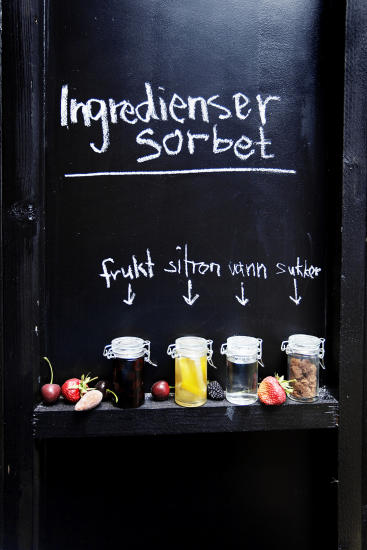 Ingredienser
sorbet
frukt sitron vann sukker